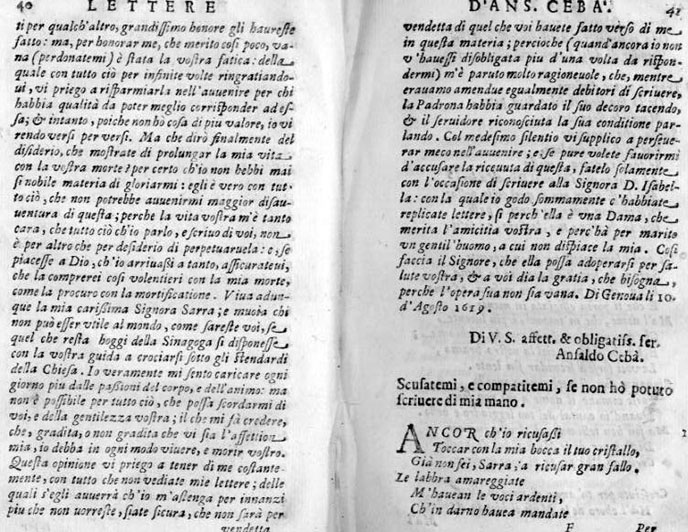 40 LETTERE
ti per qualch'altro, grandissimo honore gli haureste
fatto: ma, per honorar me, che merito cosi poco, va-
na (perdonatemi) è stata la vostra fatica: della
quale con tutto ciò per infinite volte ringratiando-
ui, vi priego a risparmiarla nell'auuenire per chi
habbia qualità da poter meglio corrisponder ad es-
sa; & intanto, poiche non hò cosa di piu valore, io vi
rendo versi per versi. Ma che dirò finalmente del
disiderio, che mostrate di prolungar la mia vita
con la vostra morte? per certo ch'io non hebbi mai
si nobile materia di gloriarmi: egli è vero con tut-
to ciò, che non potrebbe auuenirmi maggior disau-
uentura di questa; perche la vita vostra m'è tanto
cara, che tutto ciò ch'io parlo, e scriuo di voi, non
è per altro che per desiderio di perpetuaruela: e, se
piacesse a Dio, ch'io arriuassi a tanto, assicurateui,
che la comprerei cosi volentieri con la mia morte,
come la procuro con la mortificatione. Viua adun-
que la mia carissima Signora Sarra; e muoia chi
non può esser vtile al mondo, come sareste voi, se
quel che resta hoggi della Sinagoga si disponesse
con la vostra guida a crociarsi sotto gli stendardi
della Chiesa. Io veramente mi sento caricare ogni
giorno piu dalle passioni del corpo, e dell'animo: ma
non è possibile per tutto ciò, che possa scordarmi di
voi, e della gentilezza vostra; il che mi fà credere,
che, gradita, o non gradita che vi sia l'affettion
mia, io debba in ogni modo viuere, e morir vostro.
Questa opinione vi priego a tener di me costante-
mente, con tutto che non vediate mie lettere; delle
quali s'egli auuerrà ch'io m'astenga per innanzi
piu che non vorreste, siate sicura, che non sarà per
vendetta
D'ANS. CEBA'. 41
vendetta di quel che voi hauete fatto verso di me
in questa materia; percioche (quand'ancora io non
v'hauessi disobligata piu d'una volta da rispon-
dermi) m'è paruto molto ragioneuole, che, mentre
erauamo amendue egualmente debitori di scriuere,
la Padrona habbia guardato il suo decoro tacendo,
& il seruidore riconosciuta la sua conditione par-
lando. Col medesimo silentio vi supplico a perseue-
rar meco nell'auuenire; e, se pure volete fauorirmi
d'accusare la riceuuta di questa, fatelo solamente
con l'occasione di scriuere alla Signora D. Isabel-
la: con la quale io godo sommamente c'habbiate
replicate lettere, si perch'ella è una Dama, che
merita l'amicitia vostra, e perc'hà per marito
vn gentil'huomo, a cui non dispiace la mia. Cosi
faccia il Signore, che ella possa adoperarsi per sa-
lute vostra; & a voi dia la gratia, che bisogna,
perche l'opera sua non sia vana. Di Genoua li 10
d'Agosto 1619.
Di V. S. affett. & obligatiss. ser.
Ansaldo Cebà.
Scusatemi, e compatitemi, se non hò potuto
scriuere di mia mano.
ANCOR ch'io ricusassi
Toccar con la mia bocca il tuo cristallo,
Già non fei, Sarra, a ricusar gran fallo.
Le labbra amareggiate
M'hauean le voci ardenti,
Ch'in darno hauea mandate
F Per